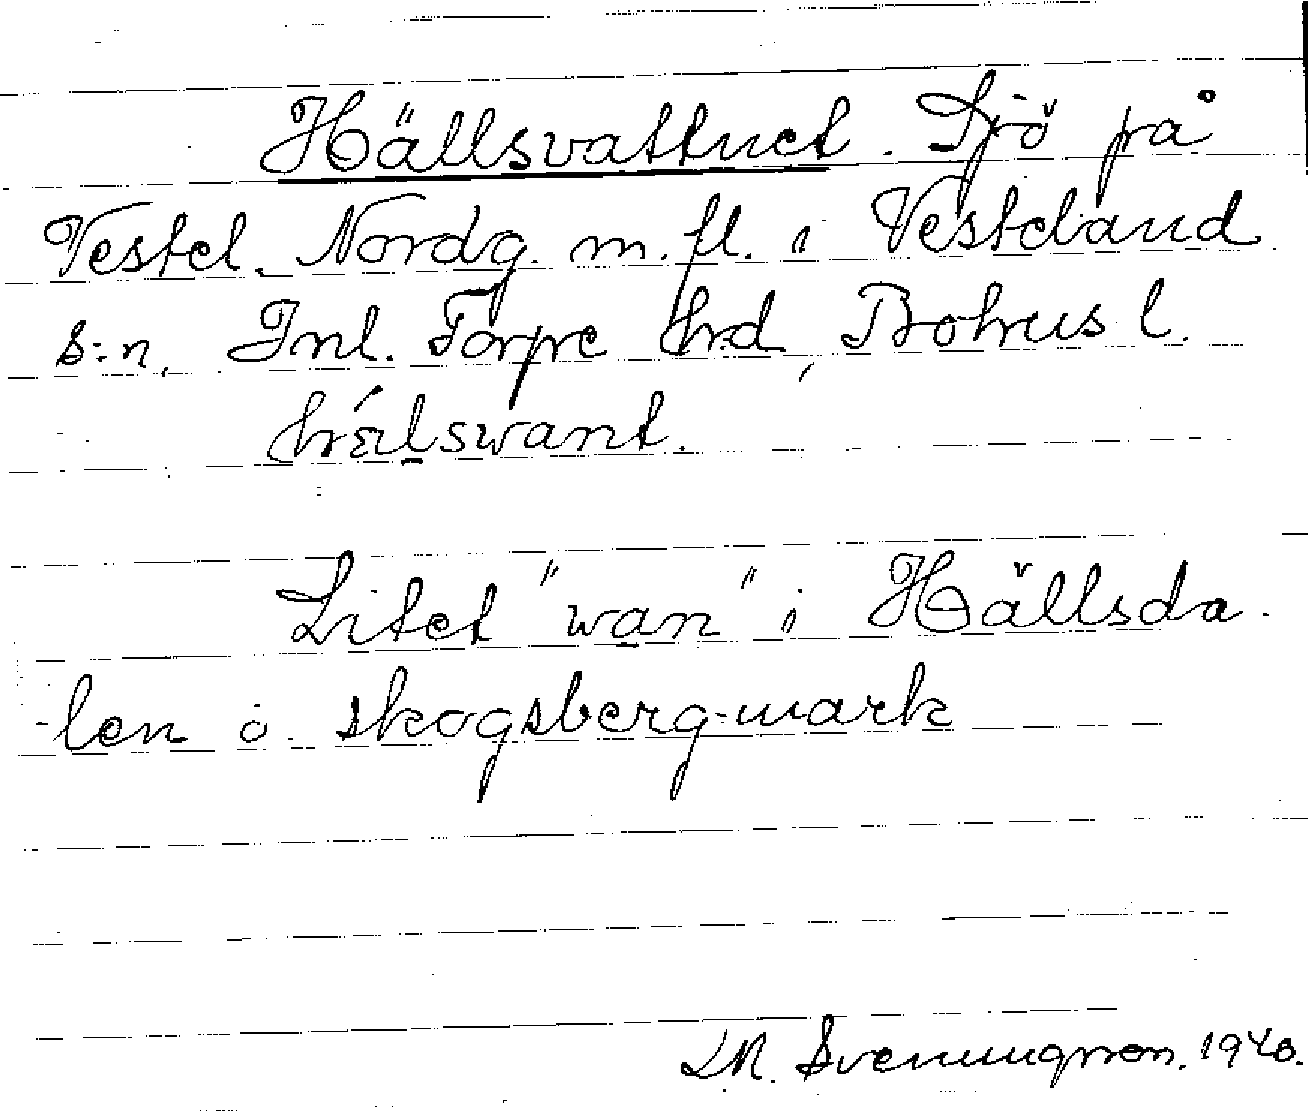 Hällsvattnet. Sjö på
Vestel. Nordg. m.fl. i Vesteland
s:n, Inl. Torpe hrd, Bohus l.
Litet "wan" i Hällsda-
-len o. skogsberg-mark
Svenungsson. 1940.